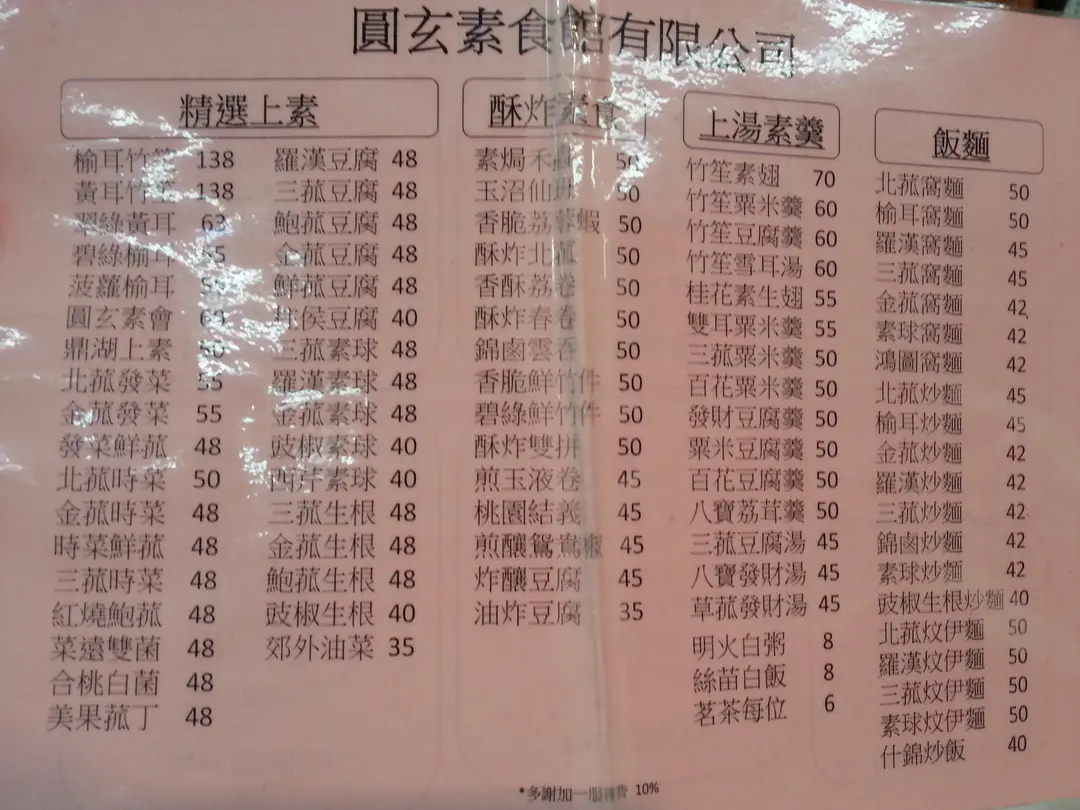 圓玄素食館有限公司
精選上素
榆耳竹笙 138
黃耳竹笙 138
翠綠黃耳 63
碧綠榆耳
菠蘿榆耳
圓玄素會
鼎湖上素
北菰發菜 55
金菰發菜 55
發菜鮮菰 48
北菰時菜 50
金菰時菜 48
時菜鮮菰 48
三菰時菜 48
紅燒鮑菰 48
菜遠雙菌 48
合桃白菌 48
美果菰丁 48
羅漢豆腐 48
三菰豆腐 48
鮑菰豆腐 48
金菰豆腐 48
鮮菰豆腐 48
柱侯豆腐 40
三菰素球 48
羅漢素球 48
金菰素球 48
豉椒素球 40
西芹素球 40
三菰生根 48
金菰生根 48
鮑菰生根 48
豉椒生根 40
郊外油菜 35
酥炸素食
素焗禾 50
玉沼仙 50
香脆荔蓉蝦 50
酥炸北菰 50
香酥荔卷 50
酥炸春卷 50
錦鹵雲吞 50
香脆鮮竹件 50
碧綠鮮竹件 50
酥炸雙拼 50
煎玉液卷 45
桃園結義 45
煎釀鴛鴦椒 45
炸釀豆腐 45
油炸豆腐 35
上湯素羹
竹笙素翅 70
竹笙粟米羹 60
竹笙豆腐羹 60
竹笙雪耳湯 60
桂花素生翅 55
雙耳粟米羹 55
三菰粟米羹 50
百花粟米羹 50
發財豆腐羹 50
粟米豆腐羹 50
百花豆腐羹 50
八寶荔茸羹 50
三菰豆腐湯 45
八寶發財湯 45
草菰發財湯 45
明火白粥 8
絲苗白飯 8
茗茶每位 6
飯麵
北菰窩麵 50
榆耳窩麵 50
羅漢窩麵 45
三菰窩麵 45
金菰窩麵 42
素球窩麵 42
鴻圖窩麵 42
北菰炒麵 45
榆耳炒麵 45
金菰炒麵 42
羅漢炒麵 42
三菰炒麵 42
錦鹵炒麵 42
素球炒麵 42
豉椒生根炒麵 40
北菰炆伊麵 50
羅漢炆伊麵 50
三菰炆伊麵 50
素球炆伊麵 50
什錦炒飯 40
*多謝加一服務費 10%